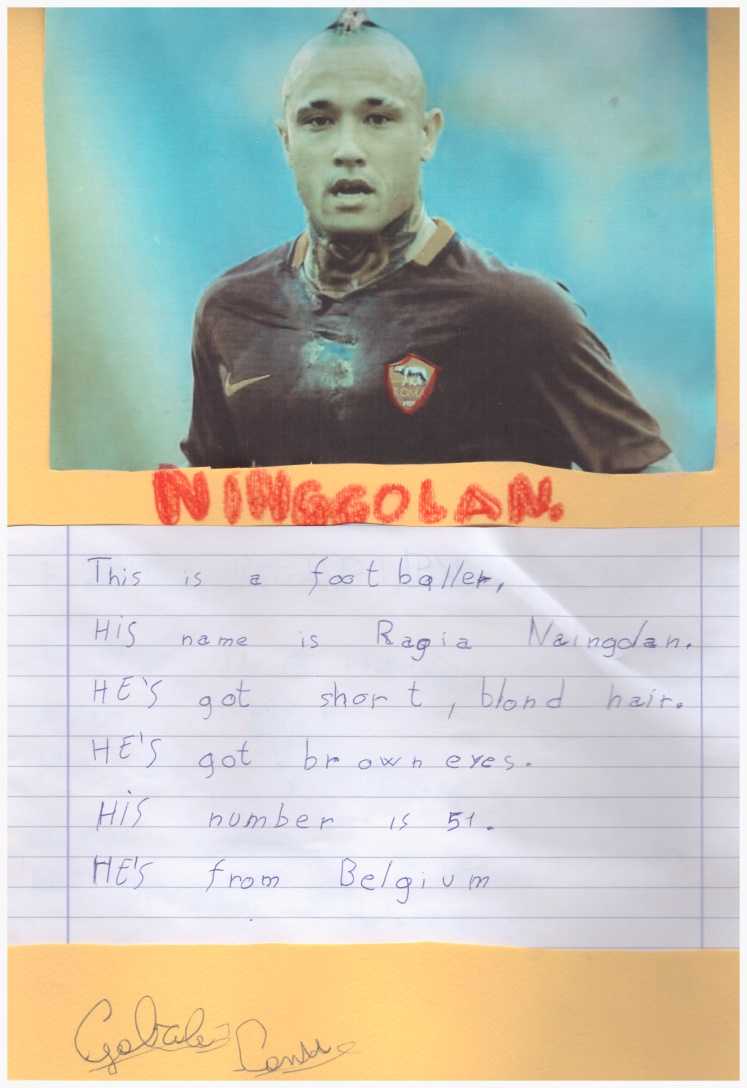 ROMA
1927
NINGGOLAN.
This is a footballer,
HIS name is Ragia Naingolan.
HE'S got short, blond hair.
HE'S got brown eyes.
HIS number is 51.
HE'S from Belgium